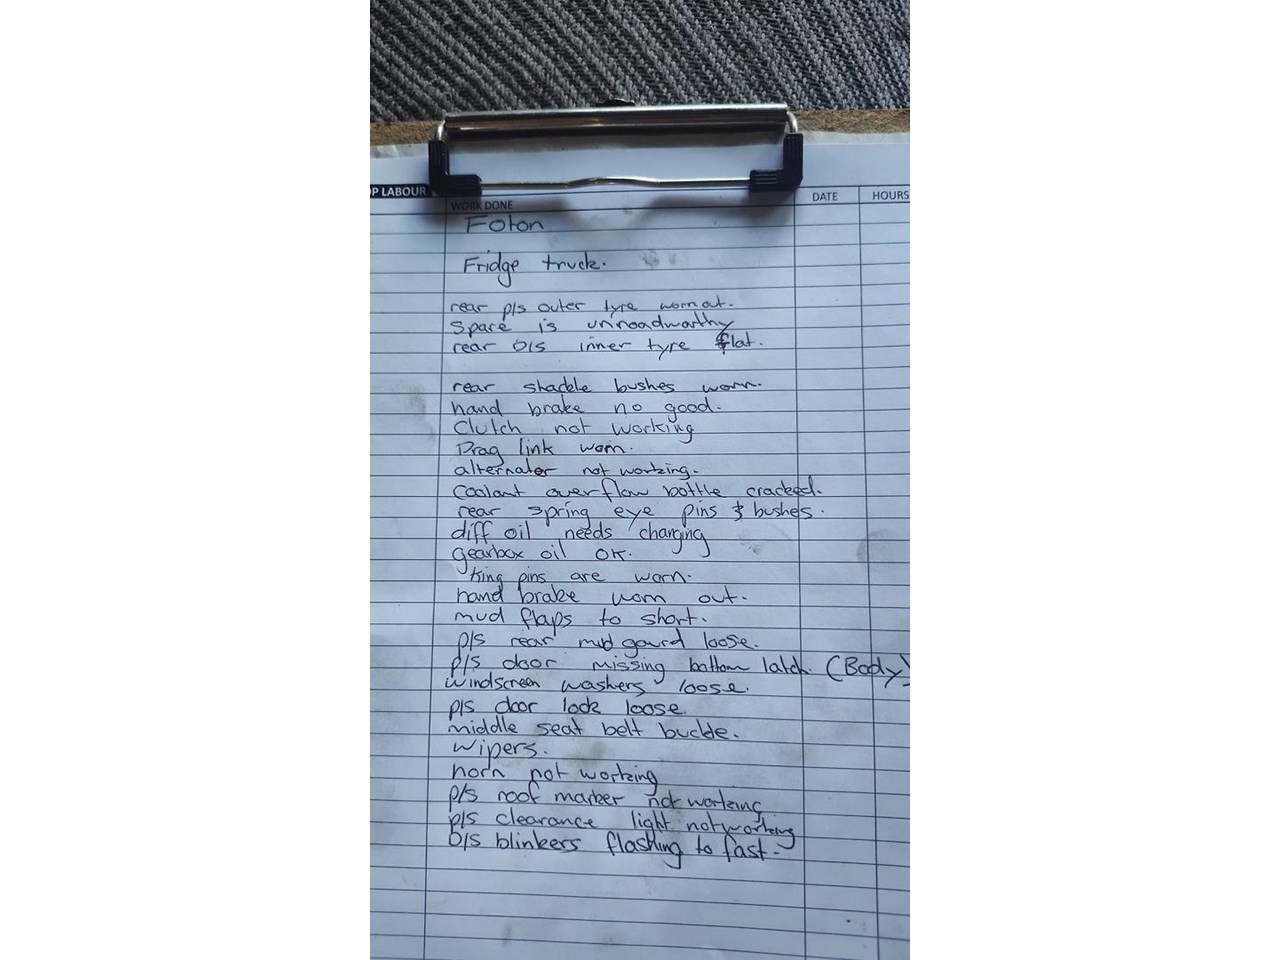 OP LABOUR
WORK DONE
DATE
HOURS
Foton
Fridge truck.
rear p/s outer tyre worn out.
Spare is unroadworthy
rear D/s inner tyre flat.
rear shackle bushes worn.
hand brake no good.
Clutch not working
Drag link worn.
alternater not working.
Coolant overflow bottle cracked.
rear spring eye pins & bushes.
diff oil needs changing
gearbox oil OK.
King pins are worn.
hand brake worn out.
mud flaps to short.
p/s rear mud gourd loose.
p/s door missing bottom latch. (Body)
windscreen washers loose.
p/s door lock loose
middle seat belt buckle.
wipers.
horn not working
p/s roof marker not working
p/s clearance light not working
D/s blinkers flashing to fast.